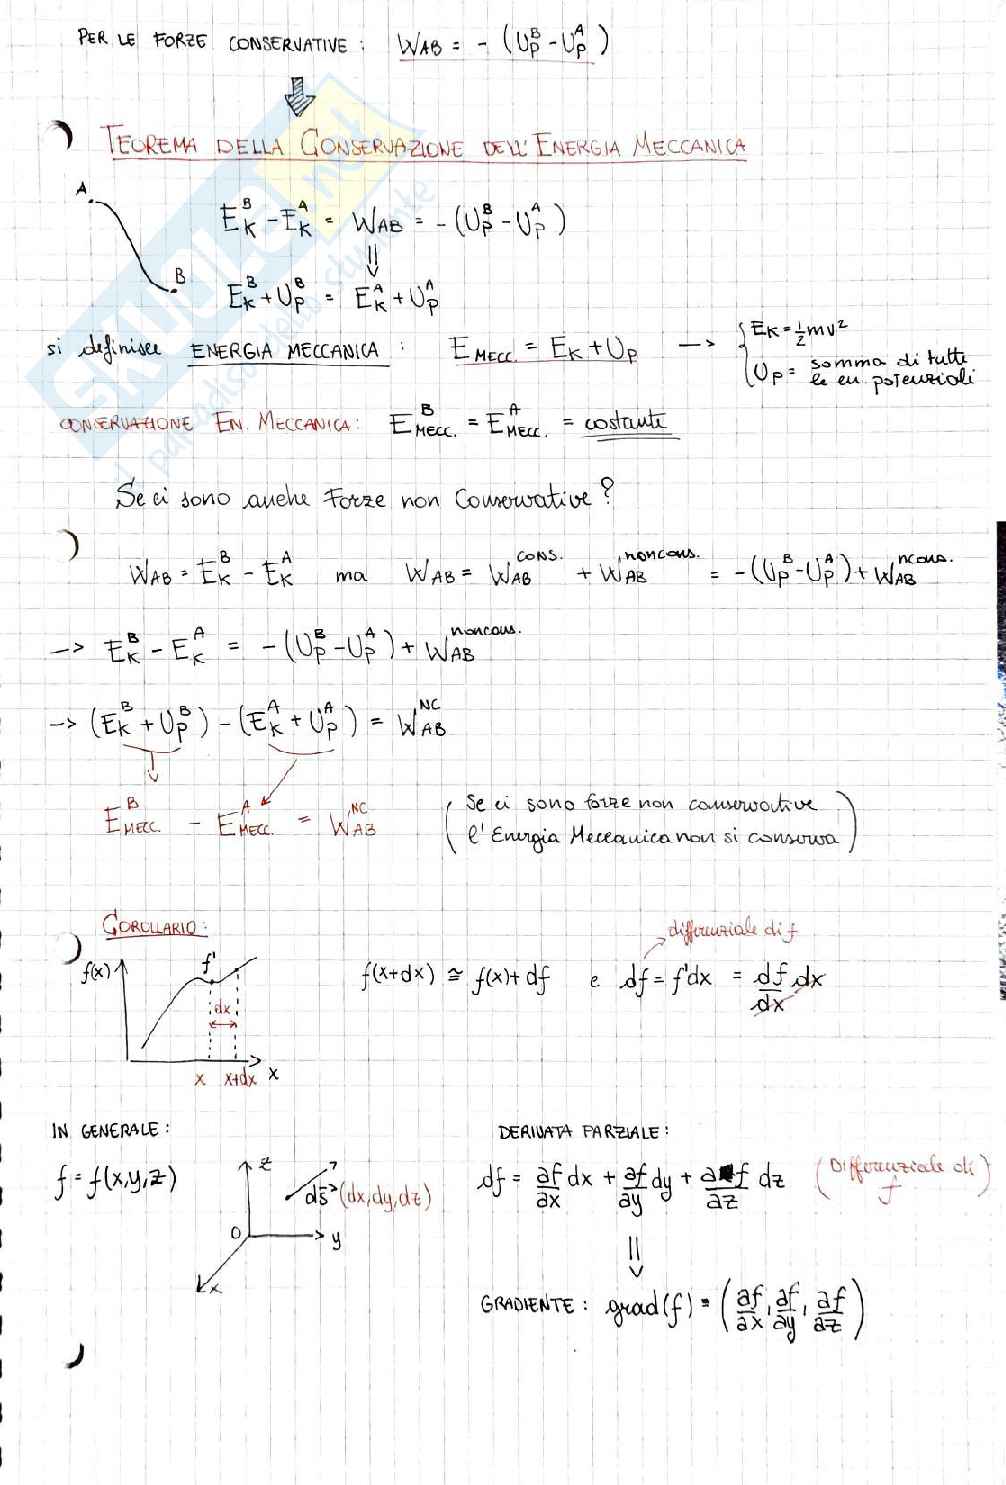 PER LE FORZE CONSERVATIVE : W_AB = - (U_P^B - U_P^A)
TEOREMA DELLA CONSERVAZIONE DELL'ENERGIA MECCANICA
A
B
E_K^B - E_K^A = W_AB = - (U_P^B - U_P^A)
⇓
E_K^B + U_P^B = E_K^A + U_P^A
si definisce ENERGIA MECCANICA : E_MECC. = E_K + U_P → { E_K = 1/2 mv²
U_P = somma di tutte
le en potenziali
CONSERVAZIONE EN. MECCANICA: E_MECC.^B = E_MECC.^A = costante
Se ci sono anche Forze non Conservative?
W_AB = E_K^B - E_K^A ma W_AB = W_AB^CONS. + W_AB^noncons. = - (U_P^B - U_P^A) + W_AB^ncons.
→ E_K^B - E_K^A = - (U_P^B - U_P^A) + W_AB^noncons.
→ (E_K^B + U_P^B) - (E_K^A + U_P^A) = W_AB^NC
E_MECC.^B - E_MECC.^A = W_AB^NC
( Se ci sono forze non conservative
l'Energia Meccanica non si conserva )
COROLLARIO :
differenziale di f
f(x)
f'
dx
x x+dx x
f(x+dx) ≅ f(x) + df e df = f'dx = df/dx dx
IN GENERALE :
DERIVATA PARZIALE :
f = f(x,y,z)
z
ds (dx, dy, dz)
O
y
x
df = ∂f/∂x dx + ∂f/∂y dy + ∂f/∂z dz ( Differenziale di
f )
⇓
GRADIENTE : grad(f) = (∂f/∂x, ∂f/∂y, ∂f/∂z)
SKUOLA.net
il paradiso dello studente